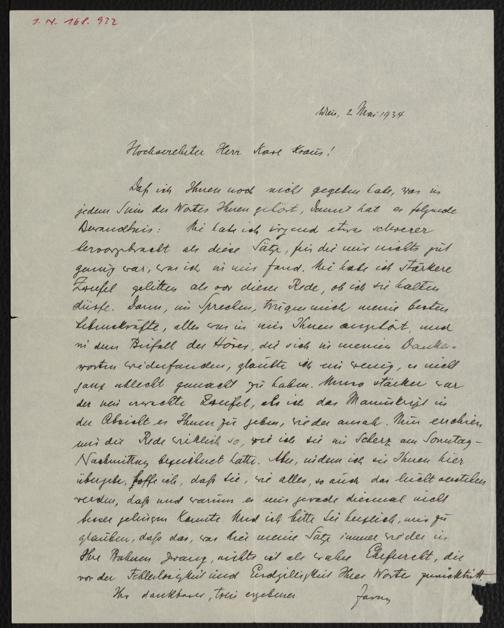 I. N. 168.922
Wien, 2 Mai 1934
Hochverehrter Herr Karl Kraus!
Daß ich Ihnen noch nicht gegeben habe, was in
jedem Sinn des Wortes Ihnen gehört, damit hat es folgende
Bewandtnis: Nie habe ich irgend etwas schwerer
hervorgebracht als diese Sätze, für die mir nichts gut
genug war, was ich in mir fand. Nie habe ich stärkere
Zweifel gelitten als vor dieser Rede, ob ich sie halten
dürfe. Dann, im Sprechen, trugen mich meine besten
Lebenskräfte, alles was in mir Ihnen angehört, und
in dem Beifall der Hörer, die sich in meinen Dankes-
worten wiederfanden, glaubte ich ein wenig, es nicht
ganz schlecht gemacht zu haben. Umso stärker war
der neu erwachte Zweifel, als ich das Manuskript in
der Absicht es Ihnen zu geben, wieder ansah. Nun erschien
mir die Rede wirklich so, wie ich sie im Scherz am Sonntag-
Nachmittag bezeichnet hatte. Aber, indem ich sie Ihnen hier
übergebe, hoffe ich, daß Sie, wie alles, so auch das leicht verstehen
werden, daß und warum es mir gerade diesmal nicht
besser gelingen konnte. Und ich bitte Sie herzlich, mir zu
glauben, daß das, was hier meine Sätze immer wieder in
Ihre Bahnen zwang, nichts ist als wahre Ehrfurcht, die
vor der Fehlerlosigkeit und Endgiltigkeit Ihres Wortes zurücktritt.
Ihr dankbarer, treu ergebener